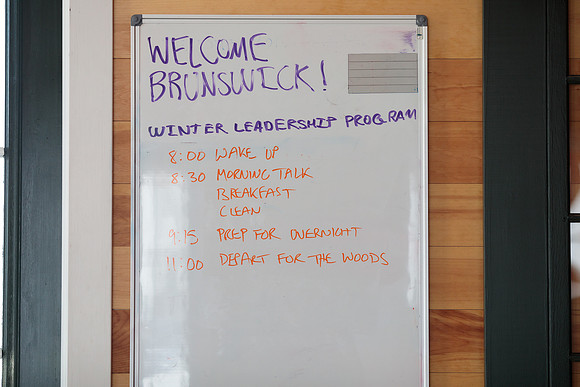 WELCOME
BRUNSWICK!
WINTER LEADERSHIP PROGRAM
8:00 WAKE UP
8:30 MORNING TALK
BREAKFAST
CLEAN
9:15 PREP FOR OVERNIGHT
11:00 DEPART FOR THE WOODS